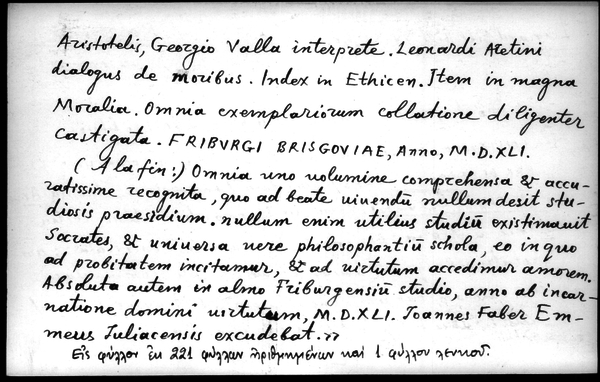 Aristotelis, Georgio Valla interprete. Leonardi Aretini
dialogus de moribus. Index in Ethicen. Item in magna
Moralia. Omnia exemplariorum collatione diligenter
castigata. FRIBVRGI BRISGOVIAE, Anno, M.D.XLI.
(A la fin:) Omnia uno uolumine comprehensa & accu-
ratissime recognita, quo ad beate uiuendū nullum desit stu-
diosis praesidium. nullum enim utilius studiū existimauit
Socrates, & uniuersa uere philosophantiū schola, eo in quo
ad probitatem incitamur, & ad uirtutum accedimur amorem.
Absoluta autem in almo Friburgensiū studio, anno ab incar-
natione domini uirtutum, M.D.XLI. Ioannes Faber Em-
meus Iuliacensis excudebat.»
Εἰς φύλλον ἐκ 221 φύλλων ἠριθμημένων καὶ 1 φύλλου λευκοῦ.